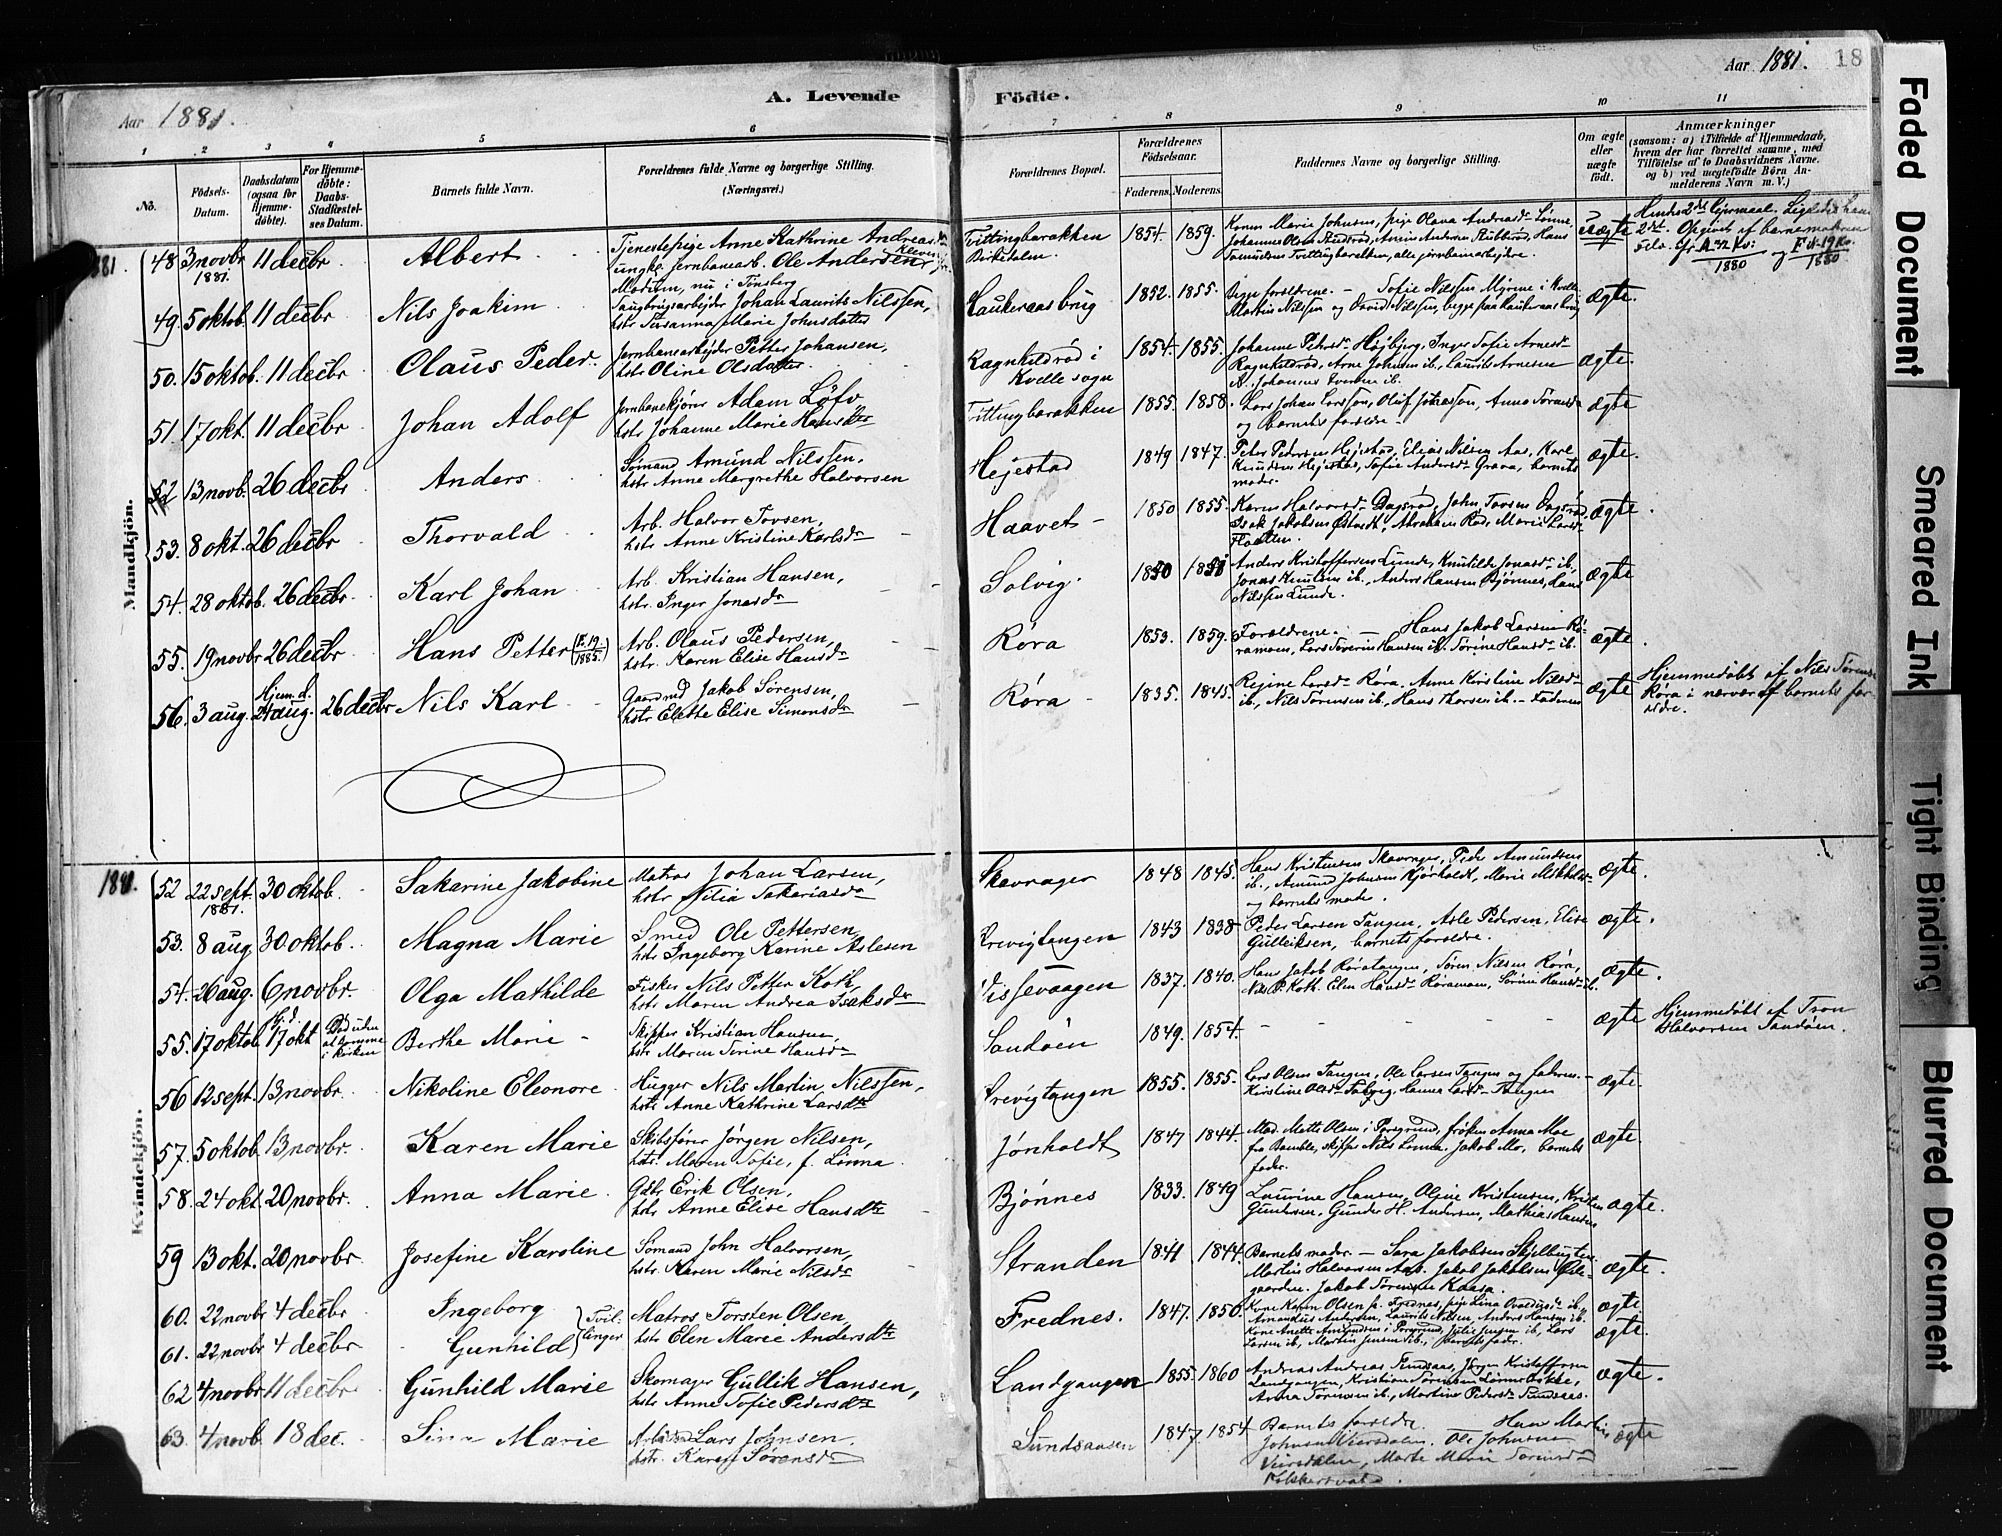 Aar 1881.
A. Levende
Födte.
Aar 1881.
18
1
2
3
4
5
6
7
8
9
10
11
No.
Födsels-
Datum.
Daabsdatum
(ogsaa for
Hjemme-
döbte).
For Hjemme-
döbte:
Daabs-
Stadfæstel-
ses Datum.
Barnets fulde Navn.
Forældrenes fulde Navne og borgerlige Stilling.
(Næringsvei.)
Forældrenes Bopæl.
Forældrenes
Födselsaar.
Faderens.
Moderens.
Faddernes Navne og borgerlige Stilling.
Om ægte
eller
uægte
födt.
Anmærkninger
(saasom: a) i Tilfælde af Hjemmedaab,
hvem der har forrettet samme, med
Tilföielse af to Daabsvidners Navne.
og b) ved uægtefödte Börn An-
melderens Navn m. V.)
Mandkjön.
1881
48 3 novbr 1881. 11 decbr Albert Tjenestepige Anne Kathrine Andreasd
ungk. Jernbanearb. Ole Andersen,
Modum, nu i Tönsberg
Tvittingbarakken
Birkedalen.
1854. 1859.
Uægte
49. 5 oktob. 11 decbr Nils Joakim Saugbrugsarbejder Johan Laurits Nilssen,
hstr. Susanna Marie Johnsdatter
Haukeraas brug 1852. 1855. Begge forældrene. – Sofie Nilssen Myrene i Kvelle
Martin Nilssen og David Nilssen, begge fra Haukeraas brug ægte.
50. 15 oktob. 11 decbr Olaus Peder. Jernbanearbejder Petter Johansen,
hstr Oline Olsdatter.
Ragnhildröd i
Kvelle sogn
1854. 1855. Johanne Pehrsd Højbjerg, Inger Sofie Arnesd
Ragnhildröd, Arne Johnsen ib., Laurits Arnesen ægte.
51. 17 okt. 11 decbr Johan Adolf Jernbanekjörer Adam Löfv
hstr Johanne Marie Hansdtr
Tvittingbarakken 1855. 1858. Lars Johan Larsson, Oluf
og barnets forældre. ægte
52 13 novb. 26 decbr Anders Sömand Amund Nilssen,
hstr. Anne Margrethe Halvorsen
Hejestad 1849 1847. Peter Pedersen Hejestad, Elias Nilsen Aas, Karl
Knudsen Hejestad, Sofie Andersd Grava, barnets
moder. ægte.
53. 8 okt. 26 decbr Thorvald Arb. Halvor Tovsen,
hstr Anne Kristine Karlsdr
Haavet – 1850 1855. Karen Halvorsd Dagsröd, John Tovsen Dagsröd
Isak Jakobsen
ægte.
54. 28 oktob. 26 decbr. Karl Johan Arb. Kristian Hansen,
hstr. Inger Jonasdr
Solvig. Anders Kristoffersen Lunde, Knutilde Jonasd ib,
Jonas Knutsen ib., Anders Hansen Bjönnes, Hans
Nilssen Lunde. ægte
55. 19 novbr 26 decbr. Hans Petter (F. 19./1885.) Arb. Olaus Pedersen,
hstr. Karen Elise Hansdr
Röra 1853. 1859. Forældrene. – Hans Jakob Larsen Rö-
ramoen, Lars Severin Hansen ib. Sörine Hansdr ib. ægte.
56. 3 aug. Hjem. d. 21 aug. 26 decbr Nils Karl Gaardmd Jakob Sörensen,
hstr Elette Elise Simonsdr
Röra 1835. 1845. Regine Larsd Röra, Anne Kristine Nilsd
ib., Nils Sörensen ib., Hans Thorsen ib. – Faderen ægte
Hjemmedöbt af Nils Sörensen
Röra i nærvær af barnets for-
ældre.
Kvindekjön.
1881.
52 22 sept. 1881. 30 oktob. Sakarine Jakobine Matros Johan Larsen,
hstr Nilia Sakariasdr
Skavrager 1848 1845. Hans Kristensen Skavrager, Peder Amundsen
ib., Amund Johnsen Kjörholdt, Marie
og barnets moder. ægte.
53. 8 aug 30 oktob. Magna Marie Smed Ole Pettersen,
hstr Ingeborg Karine Aslesen
Krevigtangen 1843 1838 Peder Larsen Tangen, Asle Pedersen, Elise
Gulleiksen, barnets forældre. ægte.
54. 26 aug. 6 novbr. Olga Mathilde Fisker Nils Petter Koth,
hstr Maren Andrea Isaksdr
Vissevaagen 1837. 1840. Hans Jakob Röratangen, Sören Nilsen Röra,
Nils P. Koth, Elen Hansd Röramoen, Sörine Hansd ib. ægte.
55. 17 oktob. Hj.d. 17 okt Död uden
at komme
i kirken
Berthe Marie – Skipper Kristian Hansen,
hstr Maren Serine Hansdr
Sandöen 1849. 1854. ægte Hjemmedöbt af Tron
Halvorsen Sandöen.
56 12 sept. 13 novbr. Nikoline Eleonore. Hugger Nils Martin Nilssen,
hstr Anne Kathrine Larsdtr
Krevigtangen 1855. 1855. Lars Olsen Tangen, Ole Larsen Tangen og faderen. –
Kirstine Olsd Salvig, Hanna Larsd Tangen ægte.
57. 5 oktob. 13 novbr. Karen Marie Skibsförer Jörgen Nilsen,
hstr. Maren Sofie, f. Linna.
Jönholdt 1847 1844. Mad. Mette Olsen i Porsgrund, fröken Anna Moe
fra Bamble, skipper Nils Linna. Jakob Mo, barnets
fader. ægte.
58. 24 okt. 20 novbr. Anna Marie. Gdbr Erik Olsen,
hstr Anne Elise Hansdtr
Bjönnes 1833. 1849 Laurine Hansen, Oline Kristensen, Kristen
Gundersen, Gunder H. Andersen, Mathias Hansen ægte.
59 13 okt. 20 novbr. Josefine Karoline Sömand John Halvorsen,
hstr. Karen Marie Nilsdr
Stranden 1841 1844. Barnets moder. – Sara Jakobsen Skjelbugten
Martin Halvorsen Aas. Jakob Jakobsen
gaarden. Jakob Sörensen Kaasa. ægte.
60. 22 novbr 4 decbr Ingeborg
61. 22 novbr 4 decbr Gunhild } Tvil-
linger
Matros Torsten Olsen,
hstr Elen Marie Andersdtr
Frednes. 1847. 1850. Kone Karen Olsen fr. Frednes,
Amandius Andersen, Laurits Nilsen, Anders Hansen ib.
Kone Anette Amundsen i Porsgrund, Julie Jensen ib, Lars
Larsen ib, Martin Jensen ib., barnets fader. ægte
ægte.
62 4 novbr 11 decbr Gunhild Marie Skomager Gullik Hansen,
hstr. Anne Sofie Pedersdtr
Landgangen 1855. 1860 Andreas Andreas Sundsaas, Jörgen Kristoffersen
Landgangen, Kristian Sörensen
Anna Sörensen ib., Martine Pedersd Sundsaas. ægte.
63. 4 novb. 18 dec. Sina Marie Lars Johnsen.
hstr. Karen Sörensdr
Sundsaasen 1847. 1854 Barnets forældre. Hans Martin
Johnsen Versdalen. Ole Johnsen
Versdalen, Marte Marie Sörensd
ægte
Faded Document
Smeared Ink
Tight Binding
Blurred Document